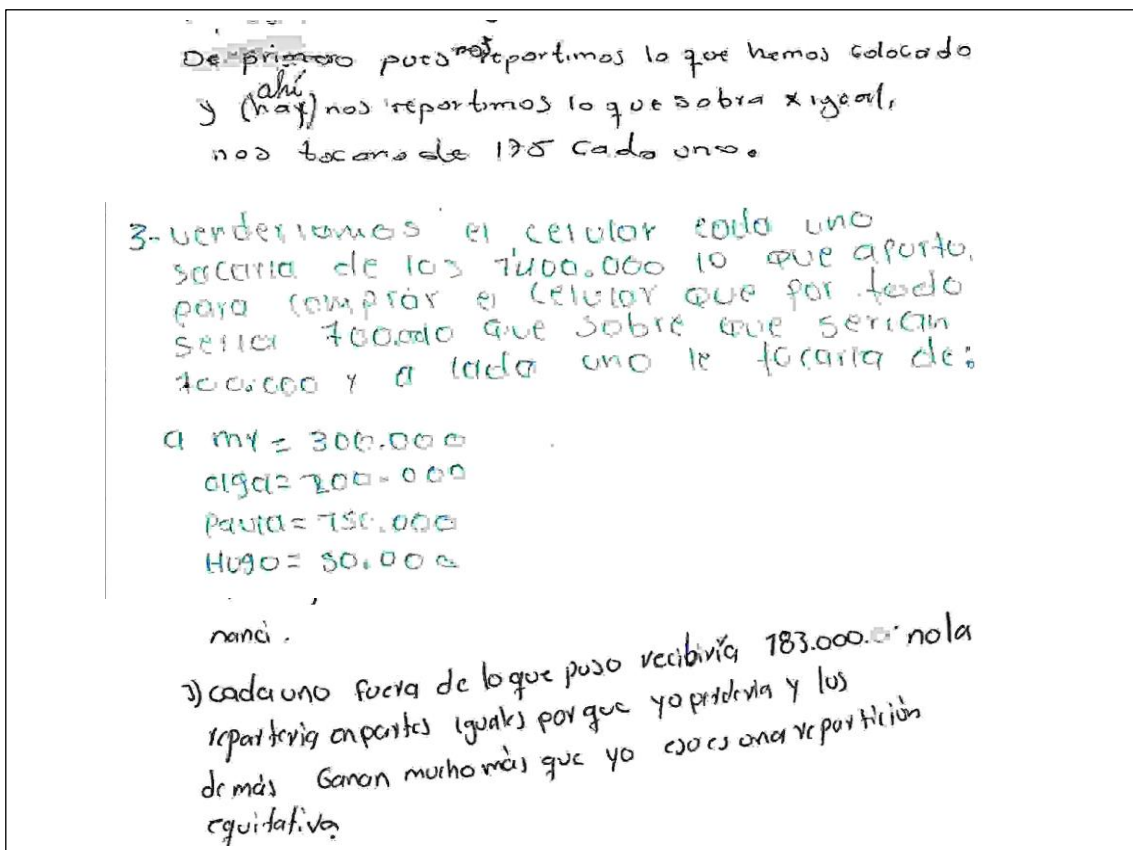 De primero pues nos repartimos lo que hemos colocado
ahí
y (hay) nos repartimos lo que sobra x igual,
nos tocaria de 175 cada uno.
3- venderiamos el celular cada uno
sacaria de los 1'400.000 lo que aporto.
para comprar el celular que por todo
seria 700.000 que sobre que serian
700.000 y a cada uno le tocaria de:
a my = 300.000
olga = 200.000
Paula = 150.000
Hugo = 50.000
nanci.
3) cada uno fuera de lo que puso recibiría 183.000. no la
repartiria en partes iguales por que yo perderia y los
demás Ganan mucho más que yo eso es una repartición
equitativa